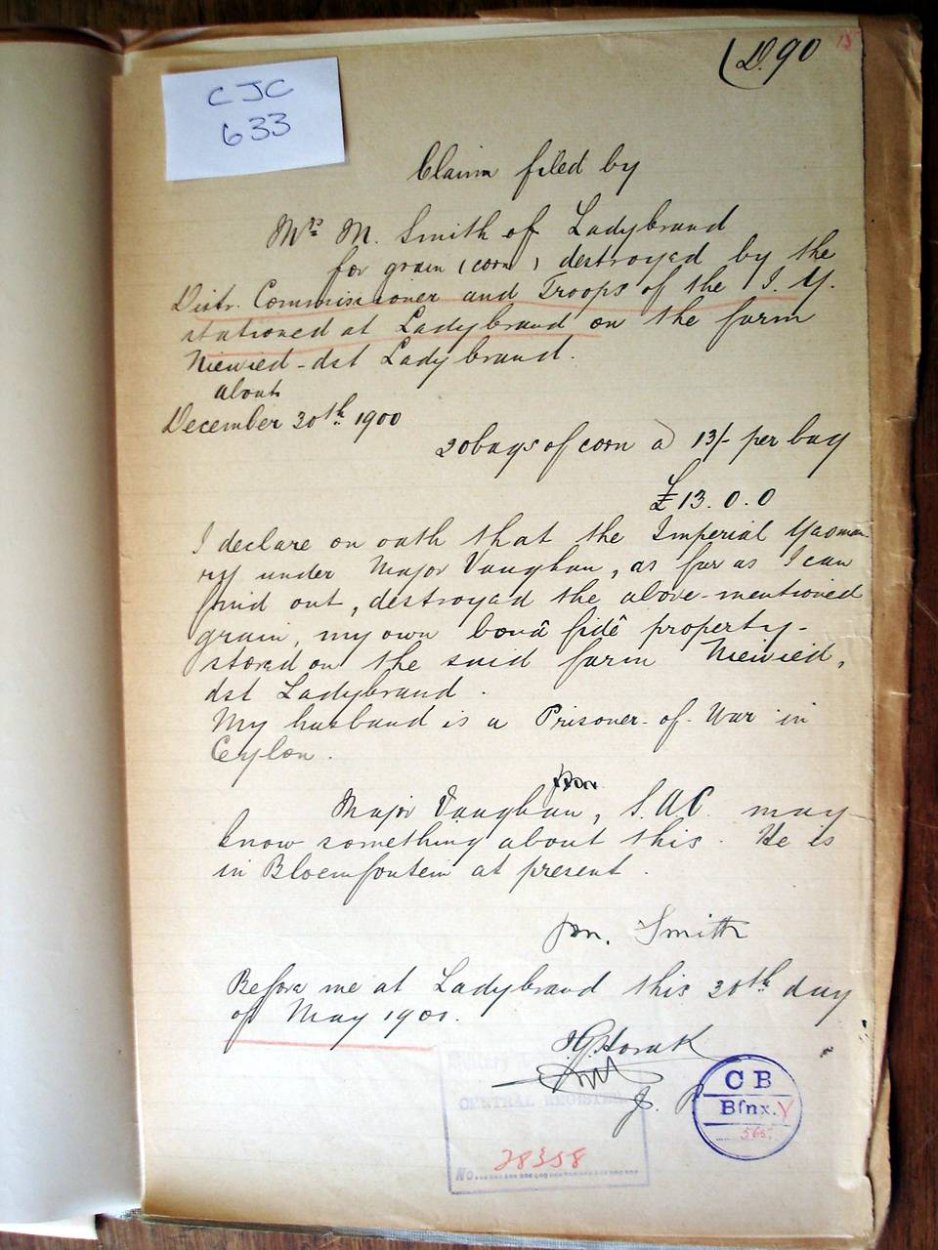 D.90
CJC
633
Claim filed by
Mrs M. Smith of Ladybrand
for grain (corn) destroyed by the
Distr. Commissioner and Troops of the I. Y.
stationed at Ladybrand on the farm
Niewied - dst Ladybrand.
about
December 20th 1900
20 bags of corn a) 13/- per bag
£13.0.0
I declare on oath that the Imperial Yeoman-
ry under Major Vaughan, as far as I can
find out, destroyed the above-mentioned
grain, my own bonâ fidê property -
stored on the said farm Niewied,
dst Ladybrand.
My husband is a Prisoner-of-War in
Ceylon.
Major Vaughan, S.A.C. may
know something about this. He is
in Bloemfontein at present.
Smith
Before me at Ladybrand this 20th day
of May 1901.
J. P.
CENTRAL REGISTER
No. 28358
C B
Bfnx. Y
565